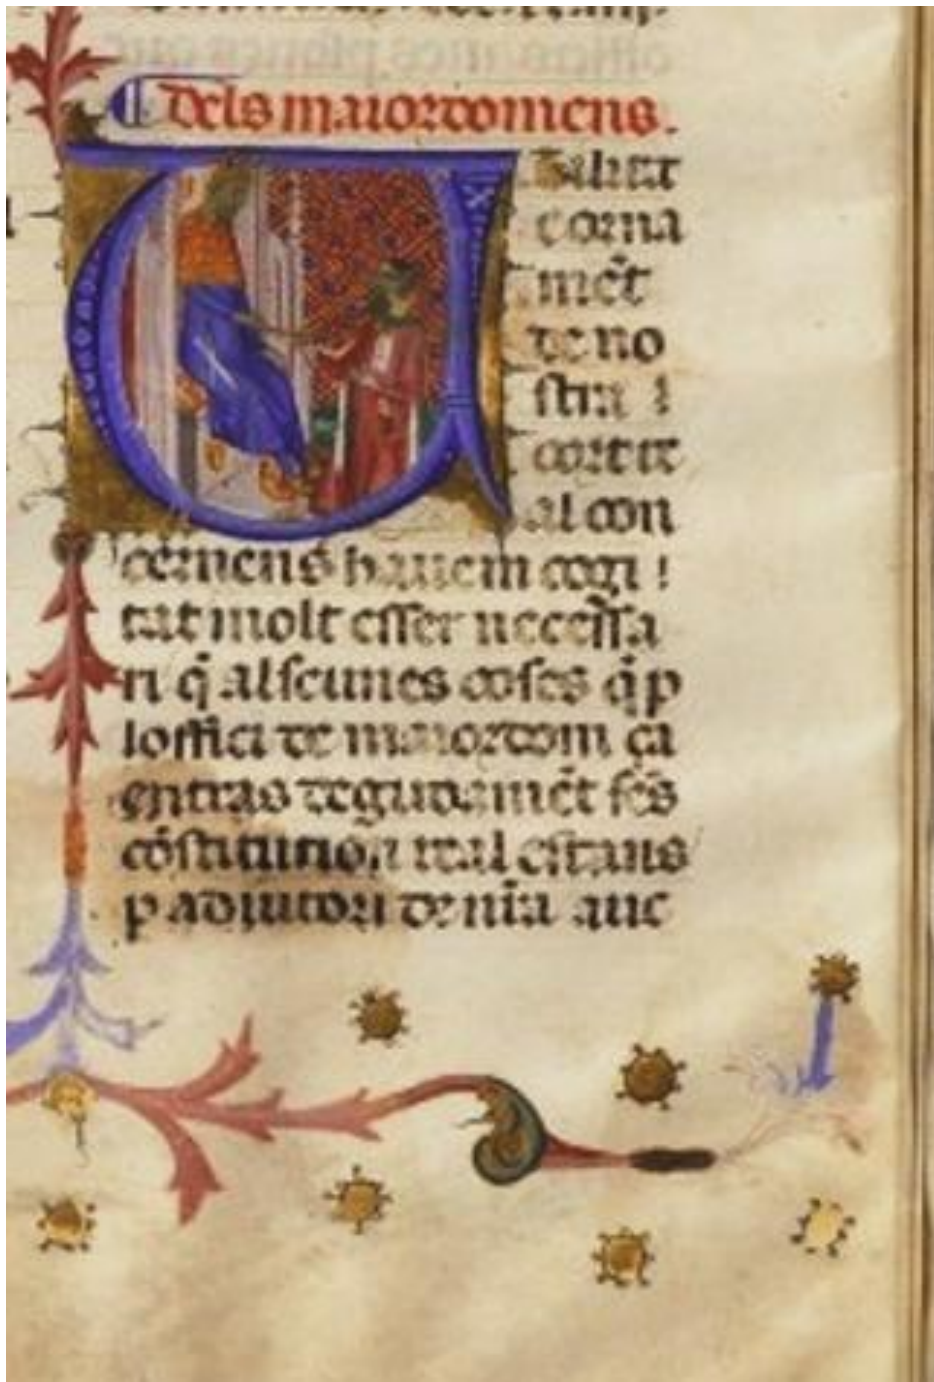 Dels maiordomens.
corna
mēt
de no
stra :
cort et
al con
cernens hauem cogi :
tat molt esser necessa
ri q̄ alscunes coses q̄ p
loffici de maiordom ça
enrras degudamēt fēs
cōstitucion real estans
p adjutori de nr̄a auc